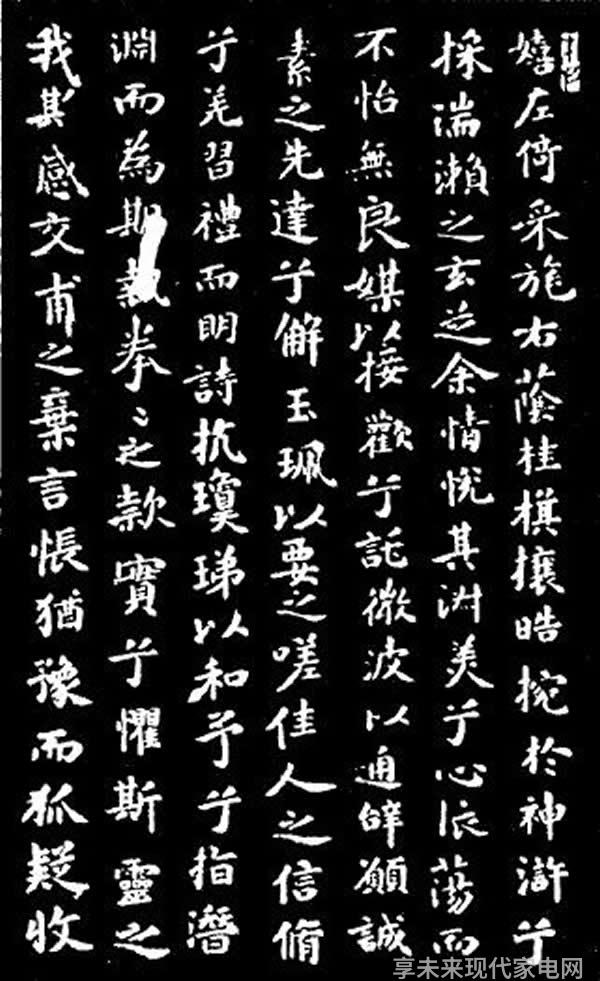 嬉左倚采旄右蔭桂棋攘晧捥於神滸兮
採湍瀨之玄芝余情悅其淑美兮心依蕩而
不怡無良媒以接歡兮託微波以通辭願誠
素之先達兮解玉珮以要之嗟佳人之信脩
兮羌習禮而眀詩抗瓊珶以和予兮指潛
淵而為期執拳〻之款實兮懼斯靈之
我其感交甫之棄言悵猶豫而狐疑收
享未来现代家电网